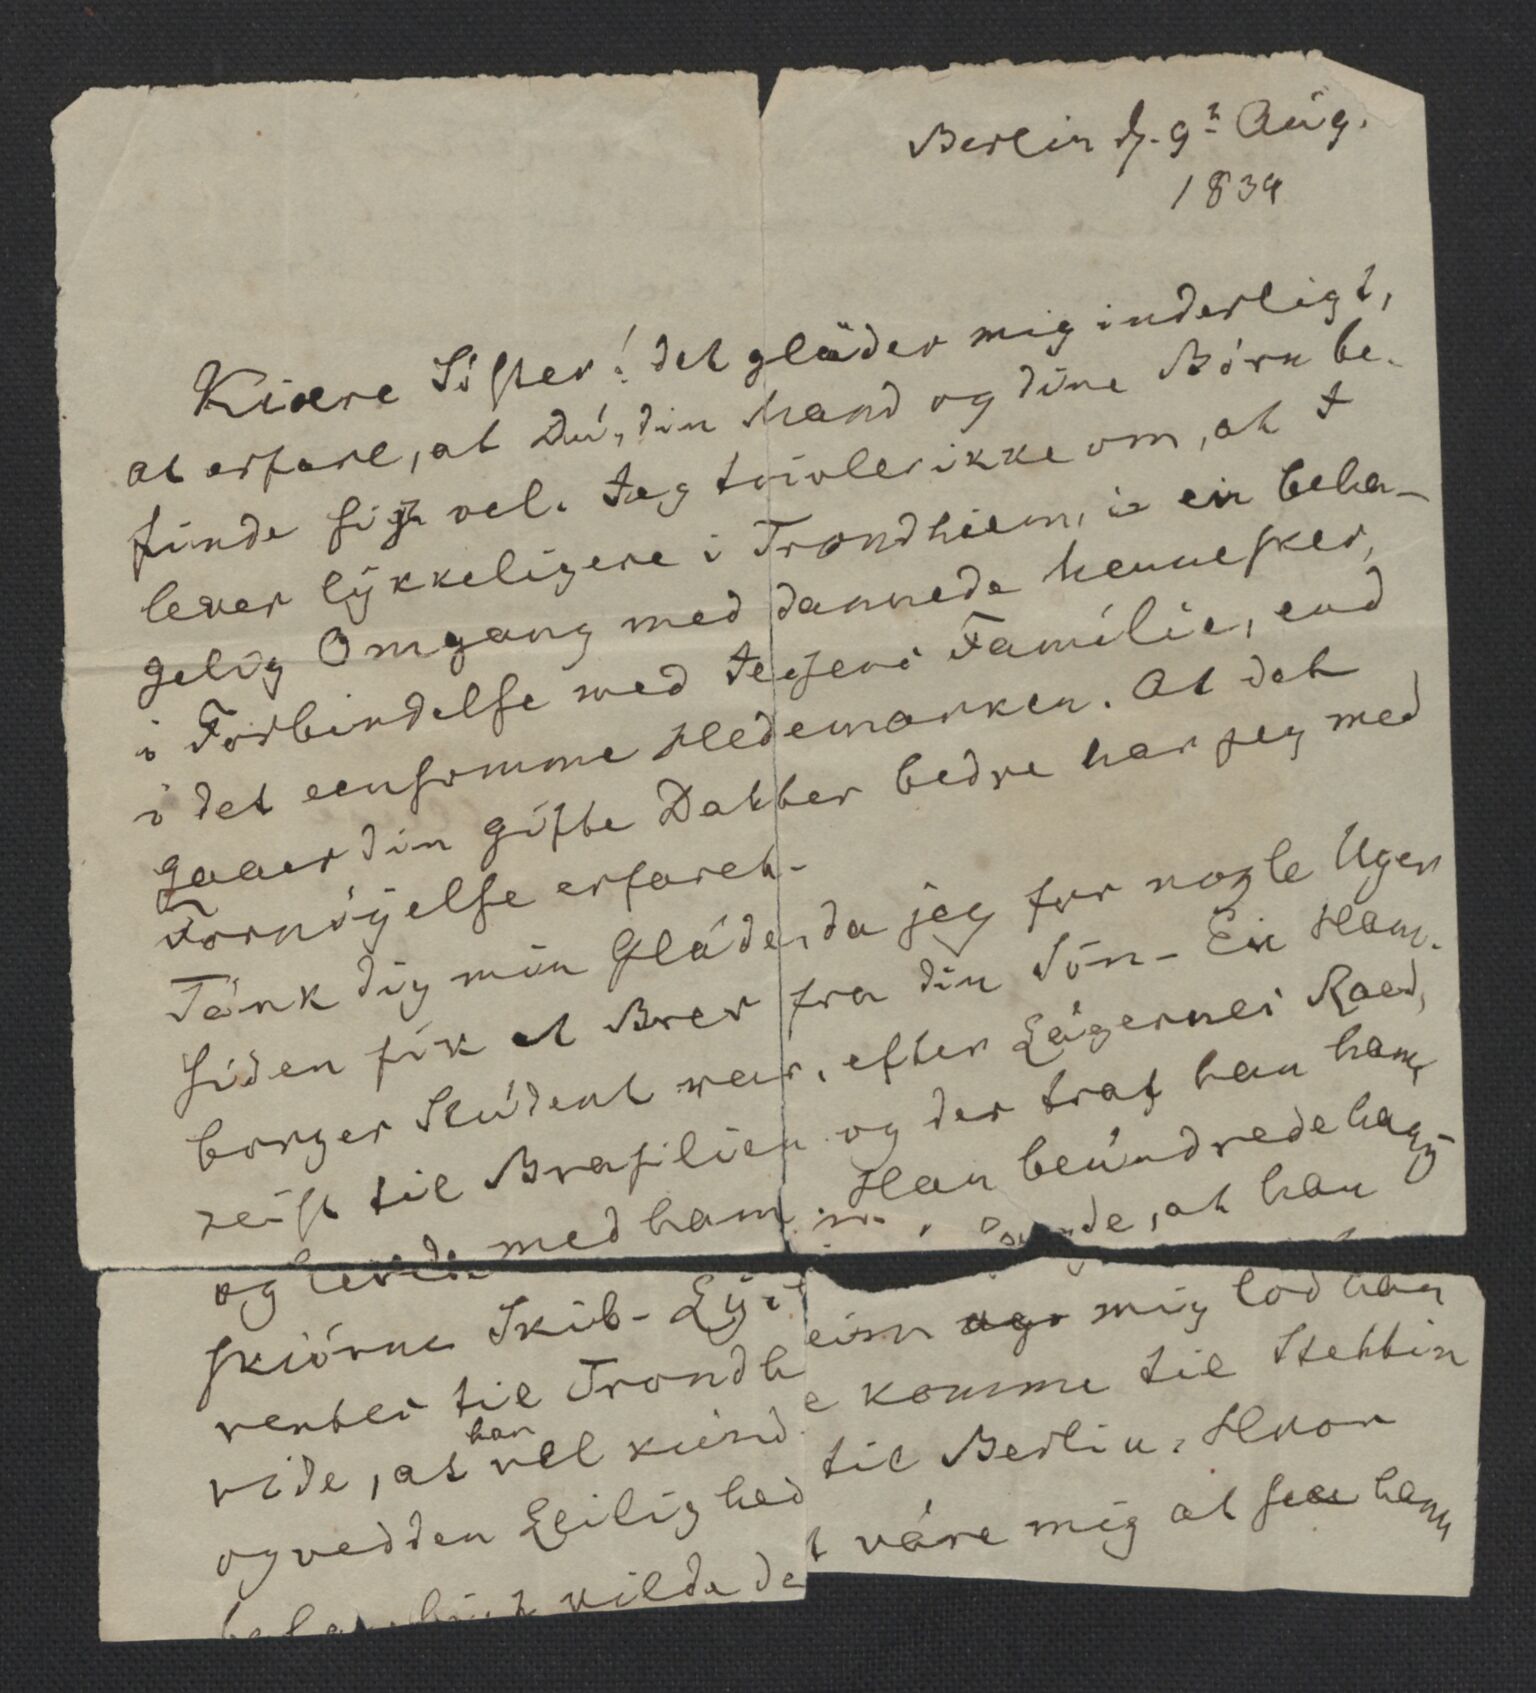 Berlin d. 9ⁿ Aug.
1834
Kiære Söster! det gläder mig inderligt,
at erfare, at Du, din Mand og dine Börn be-
finde sig vel. Jeg tvivler ikke om, at I
lever lykkeligere i Trondhiem, i en beha-
gelig Omgang med dannede Mennesker,
i Forbindelse med Familie, end
i det eensomme Hedemarken. At det
gaaer din gifte Datter bedre har jeg med
Fornöyelse erfaret.
Tänk dig min Gläde, da jeg for nogle Uger
siden fik et Brev fra din Sön - En Ham-
borger Student var, efter Lägernes Raad,
reist til Brasilien og der traf han ham,
og levede med ham. Han beundrede hans
skiönne Skib - at han
venter til Trondheim mig lod han
vide, at han vel kunde komme til Stettin
og ved den Leilighed til Berlin. Hvor
vilde det väre mig at see ham